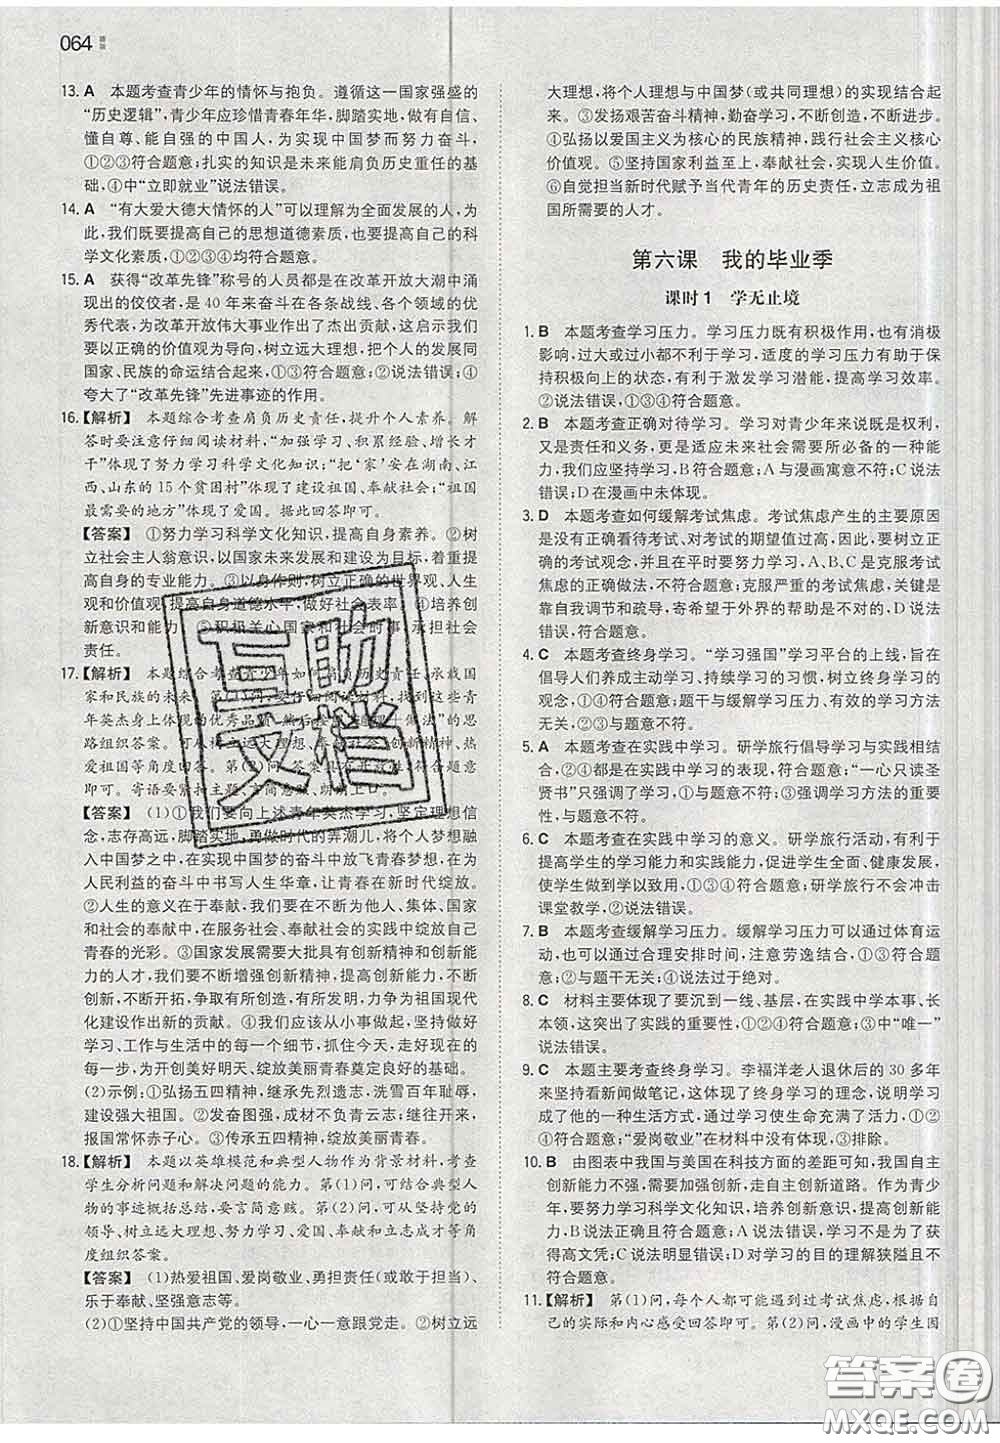 064
13. A 本题考查青少年的情怀与抱负。遵循这一国家强盛的
“历史逻辑”,青少年应珍惜青春年华,脚踏实地,做有自信、
懂自尊、能自强的中国人,为实现中国梦而努力奋斗,
①②③符合题意;扎实的知识是未来能肩负历史重任的基
础,④中“立即就业”说法错误。
14. A “有大爱大德大情怀的人”可以理解为全面发展的人,为
此,我们既要提高自己的思想道德素质,又要提高自己的科
学文化素质,①②③④均符合题意。
15. A 获得“改革先锋”称号的人员都是在改革开放大潮中涌
现出的佼佼者,是 40 年来奋斗在各条战线、各个领域的优
秀代表,为改革开放伟大事业作出了杰出贡献,这启示我们
要以正确的价值观为导向,树立远大理想,把个人的发展同
国家、民族的命运结合起来,①②③符合题意;④
夸大了“改革先锋”先进事迹的作用。
16.【解析】 本题综合考查肩负历史责任,提升个人素养。解
答时要注意仔细阅读材料,“加强学习、积累经验、增长才
干”体现了努力学习科学文化知识;“把‘家’安在湖南、江
西、山东的 15 个贫困村”体现了建设祖国、奉献社会;“祖国
最需要的地方”体现了爱国。据此回答即可。
【答案】 ①努力学习科学文化知识,提高自身素养。②树
立社会主人翁意识,以国家未来发展和建设为目标,着重提
高自身的专业能力。③以身作则,树立正确的世界观、人生
观和价值观,提高自身道德水平,做好社会表率。④培养创
新意识和能力。⑤积极关心国家和社会的事,承担社会
责任。
17.【解析】 本题综合考查青少年如何肩负历史责任、承载国
家和民族的未来。第(1)问,要仔细阅读材料,找到这些青
年英杰身上体现的优秀品质,然后按照“体现+做法”的思
路组织答案。可从树立远大理想、奉献社会、创新精神、热
爱祖国等角度回答。第(2)问,答案具有开放性,符合题意
即可。寄语要紧扣主题、言简意赅、朗朗上口。
【答案】 (1)①我们要向上述青年英杰学习,坚定理想信
念,志存高远,脚踏实地,勇做时代的弄潮儿,将个人梦想融
入中国梦之中,在实现中国梦的奋斗中放飞青春梦想,在为
人民利益的奋斗中书写人生华章,让青春在新时代绽放。
②人生的意义在于奉献,我们要在为他人、集体、国家
和社会的奉献中,在服务社会、奉献社会的实践中绽放自己
青春的光彩。③国家发展需要大批具有创新精神和创新能
力的人才,我们要不断增强创新精神,提高创新能力,不断
创新,不断开拓,争取有所创造,有所发明,力争为祖国现代
化建设作出新的贡献。④我们应该从小事做起,认真做好
学习、工作与生活中的每一个细节,抓住今天,走好青春的
每一步,为开创美好明天、绽放美丽青春奠定良好的基础。
(2)示例:①弘扬五四精神,继承先烈遗志,洗雪百年耻辱,
建设强大祖国。②发奋图强,成材不负青云志;继往开来,
报国常怀赤子心。③传承五四精神,绽放美丽青春。
18.【解析】 本题以英雄模范和典型人物作为背景材料,考查
学生分析问题和解决问题的能力。第(1)问,可结合典型人
物的事迹概括总结,要言简意赅。第(2)问,可从坚持党的
领导、树立远大理想、努力学习、爱国、奉献和立志成才等角
度组织答案。
【答案】 (1)热爱祖国、爱岗敬业、勇担责任(或敢于担当)、
乐于奉献、坚强意志等。
(2)①坚持中国共产党的领导,一心一意跟党走。②树立远
大理想,将个人理想与中国梦(或共同理想)的实现结合起
来。③发扬艰苦奋斗精神,勤奋学习,不断创造,不断进步。
④弘扬以爱国主义为核心的民族精神,践行社会主义核心
价值观。⑤坚持国家利益至上,奉献社会,实现人生价值。
⑥自觉担当新时代赋予当代青年的历史责任,立志成为祖
国所需要的人才。
第六课 我的毕业季
课时 1 学无止境
1. B 本题考查学习压力。学习压力既有积极作用,也有消极
影响,过大或过小都不利于学习,适度的学习压力有助于保
持积极向上的状态,有利于激发学习潜能,提高学习效率。
②说法错误,①③④符合题意。
2. B 本题考查正确对待学习。学习对青少年来说既是权利,
又是责任和义务,更是适应未来社会需要所必备的一种能
力,我们应坚持学习,B符合题意;A与漫画寓意不符;C说法
错误;D在漫画中未体现。
3. D 本题考查如何缓解考试焦虑。考试焦虑产生的主要原因
是没有正确看待考试、对考试的期望值过高,因此,要树立正
确的考试观念,并在平时要努力学习,A、B、C是克服考试
焦虑的正确做法,不符合题意;克服严重的考试焦虑,关键是
靠自我调节和疏导,寄希望于外界的帮助是不对的,D说法
错误,符合题意。
4. C 本题考查终身学习。“学习强国”学习平台的上线,旨在
倡导人们养成主动学习、持续学习的习惯,树立终身学习的
观念,①④符合题意;题干与缓解学习压力、有效的学习方法
无关,②③与题意不符。
5. A 本题考查在实践中学习。研学旅行倡导学习与实践相结
合,②④都是在实践中学习的表现,符合题意,“一心只读圣
贤书”只强调了学习,①与题意不符;③强调学习方法,与题
意不符。
6. C 本题考查在实践中学习的意义。研学旅行活动,有利于
提高学生的学习能力和实践能力,促进学生全面、健康发展,
使学生做到学以致用,①③④符合题意;研学旅行不会冲击
课堂教学,②说法错误。
7. B 本题考查缓解学习压力。缓解学习压力可以通过体育运
动,也可以通过合理安排时间,注意劳逸结合等方式,①③符
合题意;②与题干无关;④说法过于绝对。
8. C 材料主要体现了要沉到一线、基层,在实践中学本事、长
本领,这突出了实践的重要性,①②④符合题意;③中“唯一”
说法错误。
9. C 本题主要考查终身学习。李福洋老人退休后的 30 多年
来坚持看新闻做笔记,这体现了终身学习的理念,说明学习
成了他的一种生活方式,通过学习使生命充满了活力,①②
④符合题意;“爱岗敬业”在材料中没有体现,③排除。
10. B 由图表中我国与美国在科技方面的差距可知,我国自主
创新能力不强,需要加强创新,走自主创新道路。作为青少
年,要努力学习科学文化知识,培养创新意识,提高创新能
力,B说法正确且符合题意;A说法错误,学习不是为了获
得高文凭;C说法明显错误;D对学习的目的理解狭隘且不
符合题意。
11.【解析】 第(1)问,每个人都可能遇到过考试焦虑,根据自
己的实际和内心感受回答即可。第(2)问,漫画中的学生因
互助
文档
答案圈
MXQE.COM